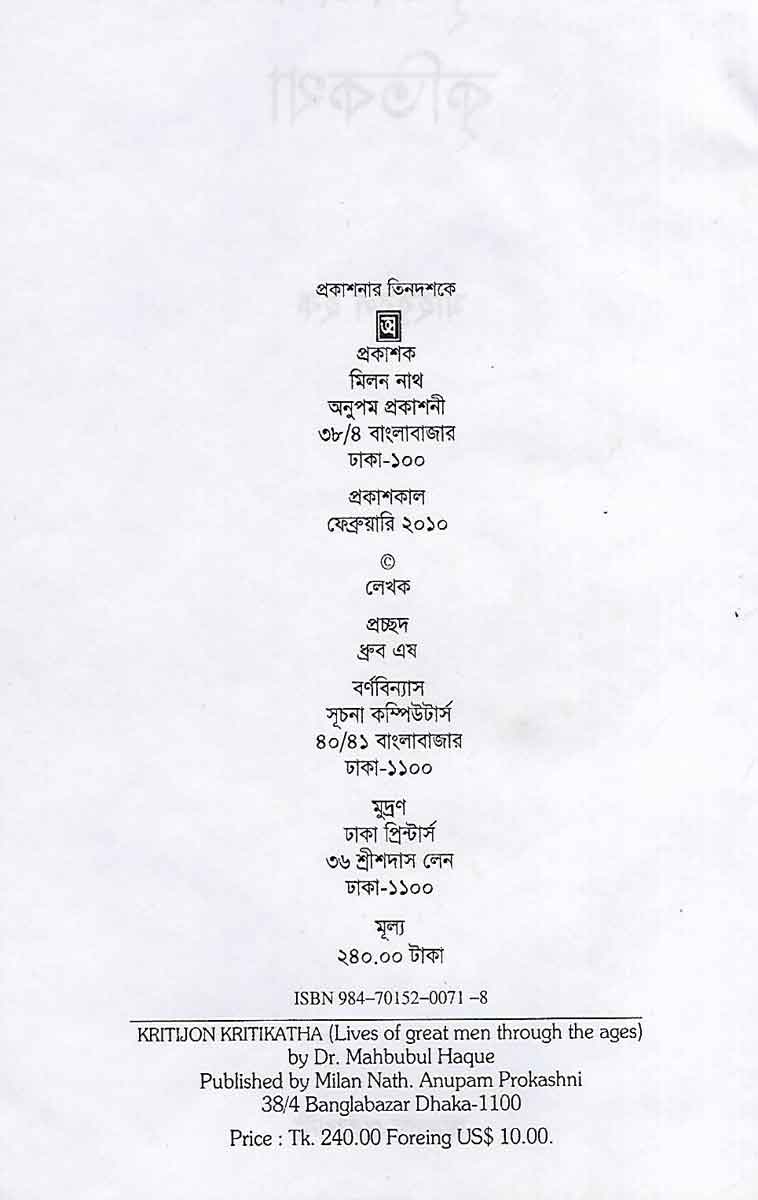 প্রকাশনার তিনদশকে
অ
প্রকাশক
মিলন নাথ
অনুপম প্রকাশনী
৩৮/৪ বাংলাবাজার
ঢাকা-১০০
প্রকাশকাল
ফেব্রুয়ারি ২০১০
©
লেখক
প্রচ্ছদ
ধ্রুব এষ
বর্ণবিন্যাস
সূচনা কম্পিউটার্স
৪০/৪১ বাংলাবাজার
ঢাকা-১১০০
মুদ্রণ
ঢাকা প্রিন্টার্স
৩৬ শ্রীশদাস লেন
ঢাকা-১১০০
মূল্য
২৪০.০০ টাকা
ISBN 984–70152–0071 –8
KRITIJON KRITIKATHA (Lives of great men through the ages)
by Dr. Mahbubul Haque
Published by Milan Nath. Anupam Prokashni
38/4 Banglabazar Dhaka-1100
Price : Tk. 240.00 Foreing US$ 10.00.